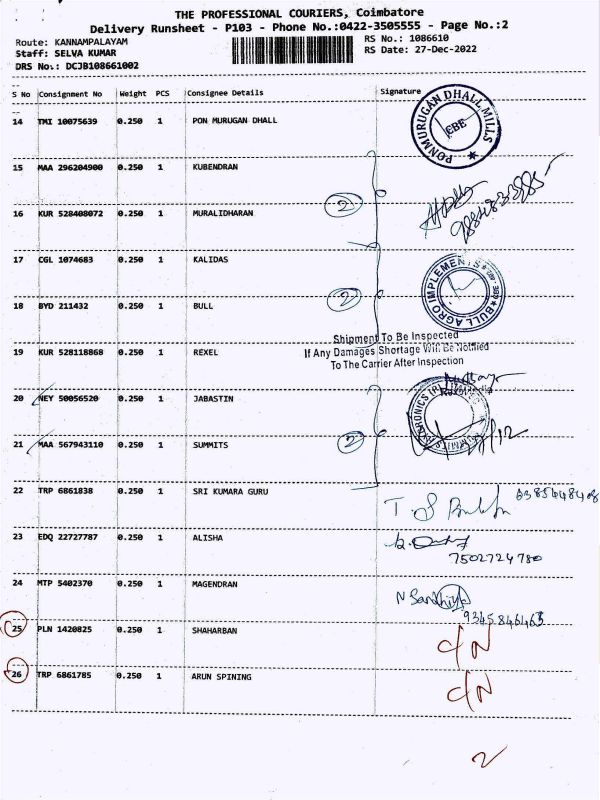 THE PROFESSIONAL COURIERS, Coimbatore
Delivery Runsheet - P103 - Phone No.:0422-3505555 - Page No.:2
Route: KANNAMPALAYAM
Staff: SELVA KUMAR
DRS No.: DCJB108661002
RS No.: 1086610
RS Date: 27-Dec-2022
S No Consignment No Weight PCS Consignee Details Signature
14 TMI 10075639 0.250 1 PON MURUGAN DHALL
PONMURUGAN DHALL MILLS
CBE
15 MAA 296204900 0.250 1 KUBENDRAN
2
16 KUR 528408072 0.250 1 MURALIDHARAN
17 CGL 1074683 0.250 1 KALIDAS
BULL AGRO IMPLEMENTS
2
18 BYD 211432 0.250 1 BULL
Shipment To Be Inspected
If Any Damages Shortage Will Be Notified
To The Carrier After Inspection
19 KUR 528118868 0.250 1 REXEL
20 NEY 50056520 0.250 1 JABASTIN
21 MAA 567943110 0.250 1 SUMMITS
2
22 TRP 6861838 0.250 1 SRI KUMARA GURU
23 EDQ 22727787 0.250 1 ALISHA
7502724780
24 MTP 5402370 0.250 1 MAGENDRAN
N Sandhiya
25 PLN 1420825 0.250 1 SHAHARBAN
C/N
26 TRP 6861785 0.250 1 ARUN SPINING
C/N
2